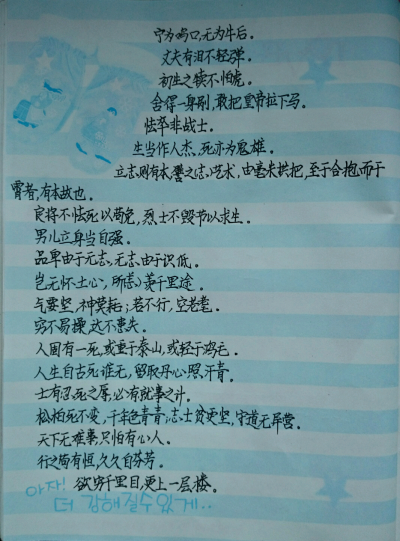 宁为鸡口,无为牛后。
丈夫有泪不轻弹。
初生之犊不怕虎。
舍得一身剐,敢把皇帝拉下马。
怯卒非战士。
生当作人杰,死亦为鬼雄。
立志则有本,譬之艺术,由毫末拱把,至于合抱而干
霄者,有本故也。
良将不怯死以苟免,烈士不毁节以求生。
男儿立身当自强。
品卑由于无志,无志由于识低。
岂无怀土心,所志千里途。
气要坚,神莫耗;若不行,空老耄。
穷不易操,达不患失。
人固有一死,或重于泰山,或轻于鸿毛。
人生自古死谁无,留取丹心照汗青。
士有忍死之辱,必有就事之计。
松柏死不变,千年色青青;志士贫更坚,守道无异营。
天下无难事,只怕有心人。
行之苟有恒,久久自芬芳。
欲穷千里目,更上一层楼。
아자!
더 강해질수있게..